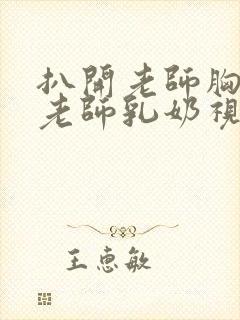 扒開老師胸
老師乳奶視
王惠敏